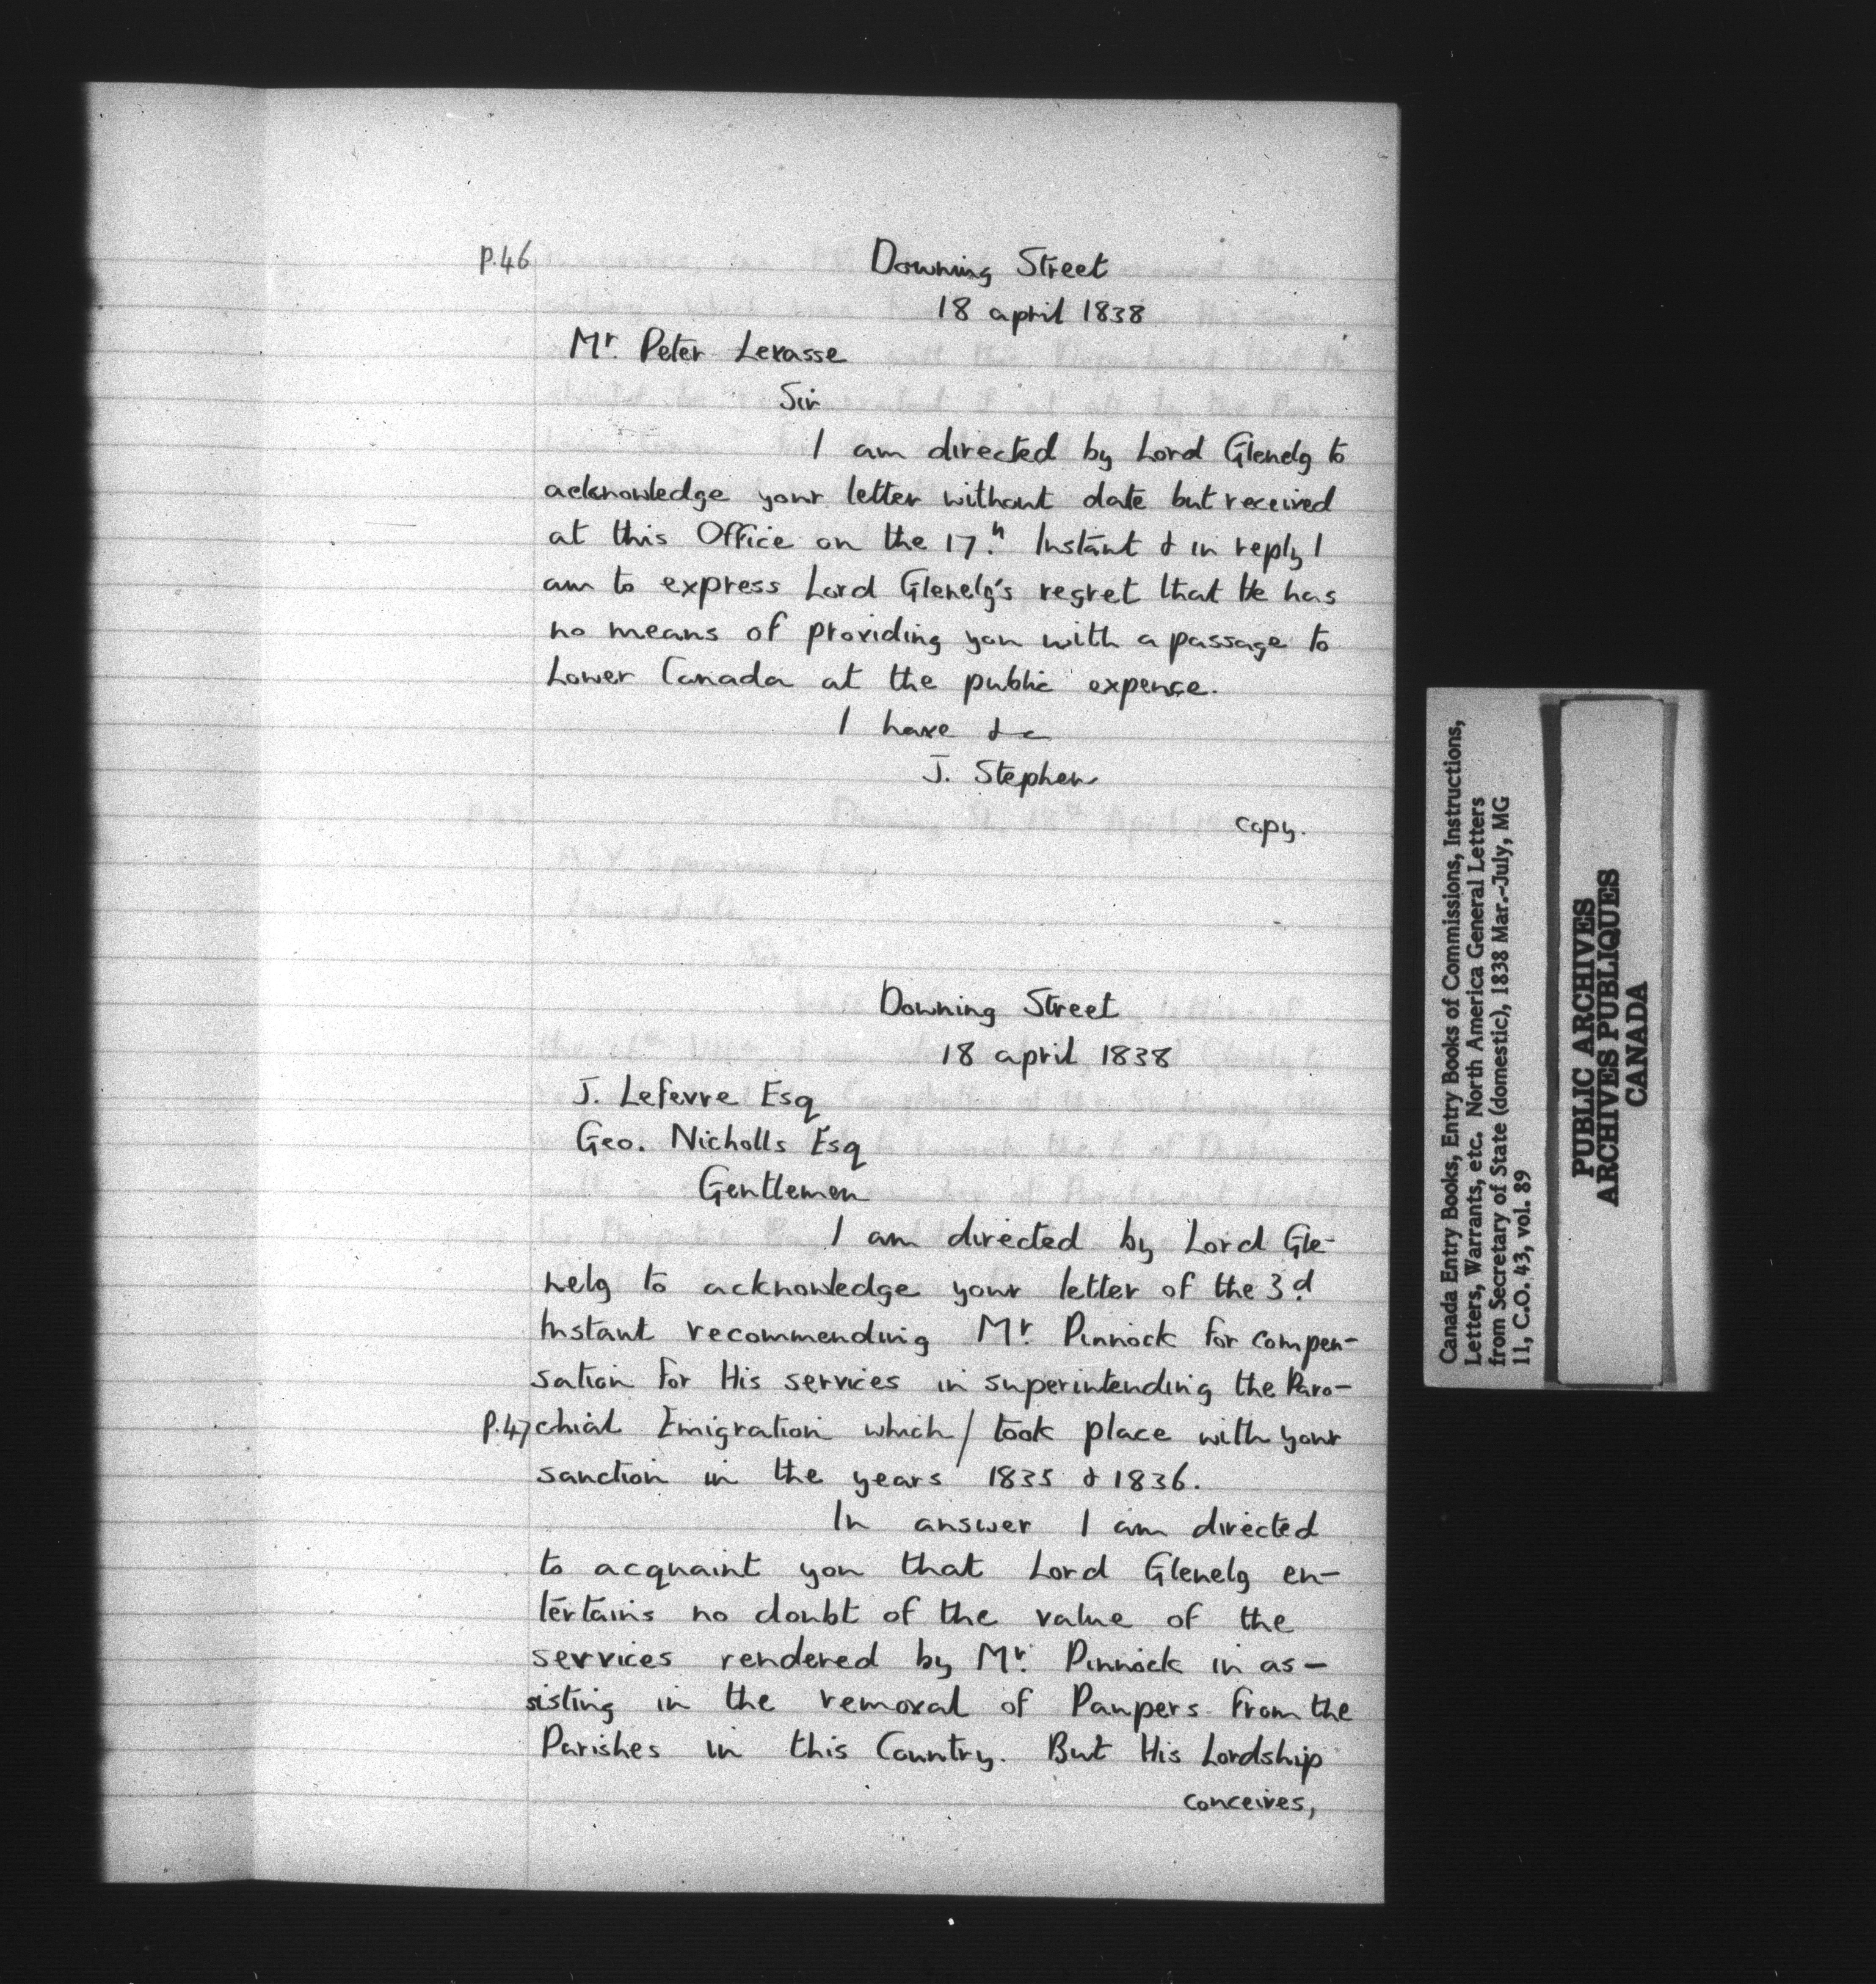 P.46
Downing Street
18 april 1838
Mr. Peter Levasse
Sir
I am directed by Lord Glenelg to
acknowledge your letter without date but received
at this Office on the 17.h Instant & in reply I
am to express Lord Glenelg's regret that He has
no means of providing you with a passage to
Lower Canada at the public expense.
I have &c
J. Stephen
copy.
Downing Street
18 april 1838
J. Lefevre Esq
Geo. Nicholls Esq
Gentlemen
I am directed by Lord Gle-
nelg to acknowledge your letter of the 3.d
Instant recommending Mr. Pinnock for compen-
sation for His services in superintending the Paro-
P.47 chial Emigration which / took place with your
sanction in the years 1835 & 1836.
In answer I am directed
to acquaint you that Lord Glenelg en-
tertains no doubt of the value of the
services rendered by Mr. Pinnock in as-
sisting in the removal of Paupers from the
Parishes in this Country. But His Lordship
conceives,
Canada Entry Books, Entry Books of Commissions, Instructions,
Letters, Warrants, etc. North America General Letters
from Secretary of State (domestic), 1838 Mar.-July, MG
11, C.O. 43, vol. 89
PUBLIC ARCHIVES
ARCHIVES PUBLIQUES
CANADA